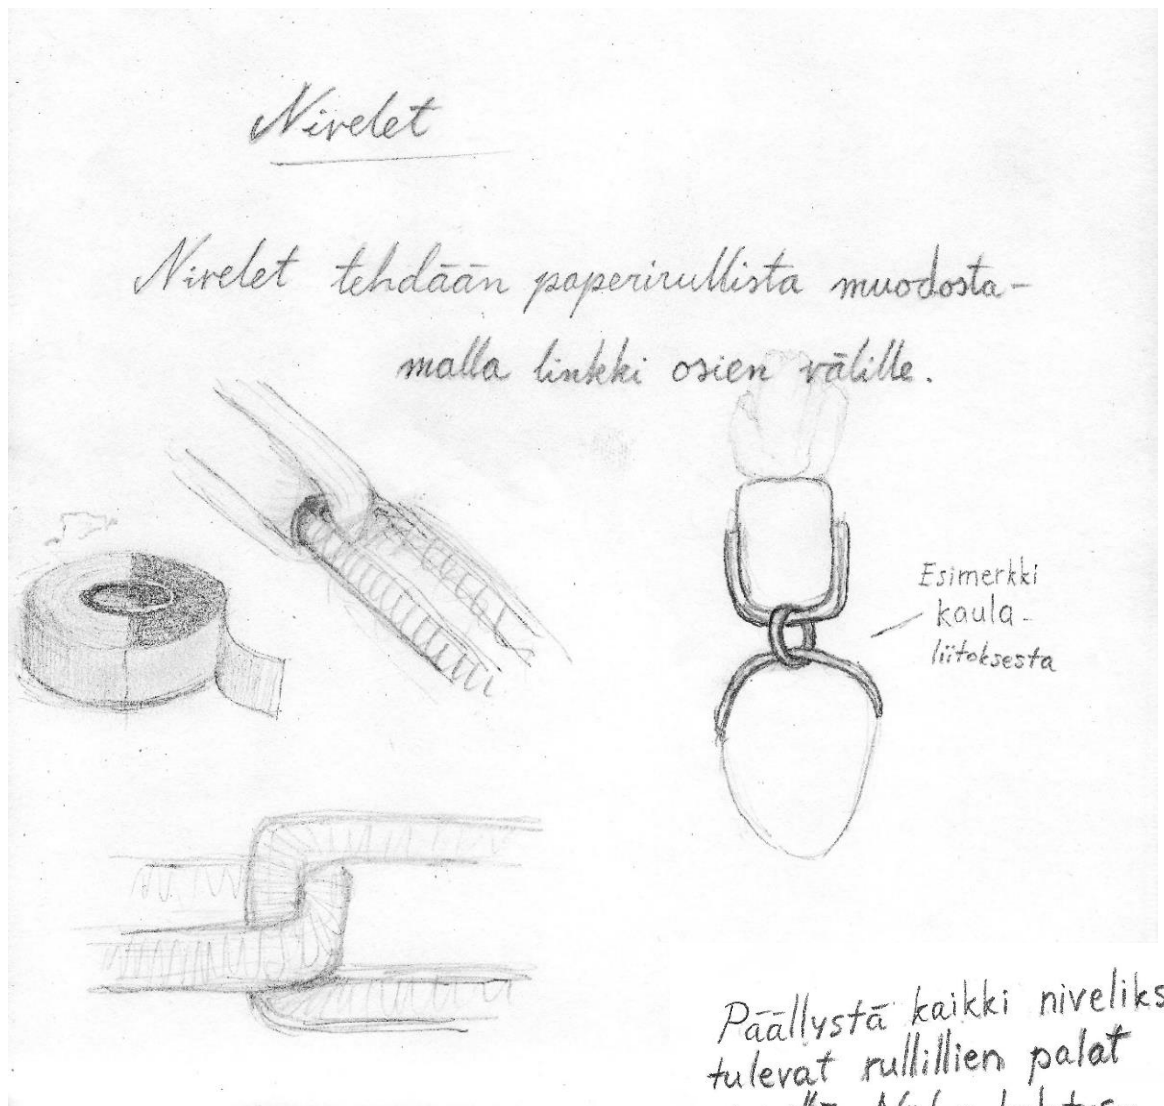 Nivelet
Nivelet tehdään paperirullista muodosta-
malla linkki osien välille.
Esimerkki
kaula-
liitoksesta
Päällystä kaikki niveliks
tulevat rullillien palat